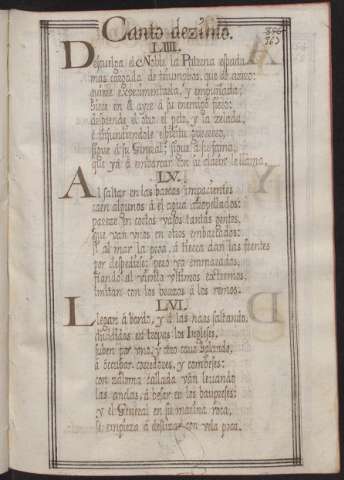 Canto dezimo.
LIIII.
Desnuda el Noble la Patrona espada
mas cargada de triumphos, que de azero:
quiere experimentarla, y empuñada;
hiere en el ayre á su enemigo fiero:
defiende el otro el peto, y la zelada,
é
sigue á su General, sigue a su fama,
que yá á embarcar con su clarin le llama.
LV.
Al saltar en las barcas impacientes
caen algunos á el agua atropellados:
parcae en cortos vasos tantas gentes,
que van unos en otros embarcados:
al mar la proa, á tierra dan las frentes
por despedirse: pero ya enmarados,
fiando al viento vltimos extremos,
imitan con los brazos á los remos.
LVI.
Llegan á bordo, y á las naos saltando,
diuididos en tropas los Ingleses,
suben por vno, y otro cauo gateando,
á occupar corredores, y combeses:
con zaloma callada van leuando
las anclas, á besar en los baupreses:
y el General en su marina roca,
se empieza á deslizar con vela poca.